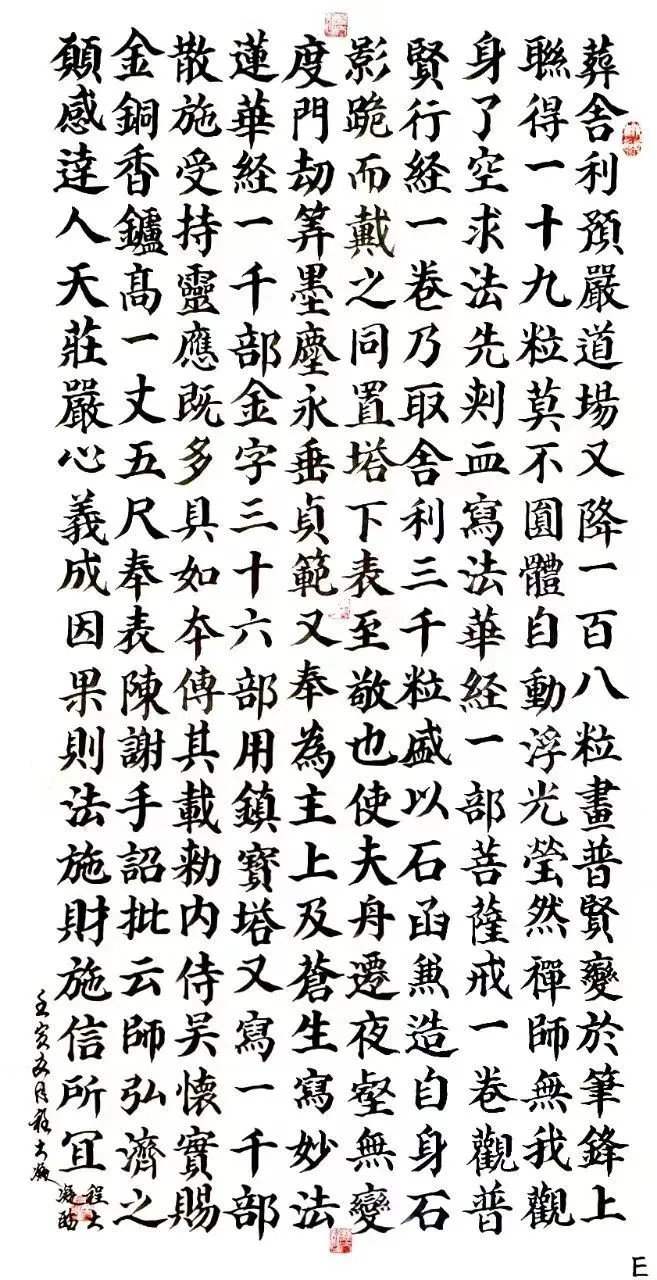 葬舍利預嚴道場又降一百八粒畫普賢變於筆鋒上
聯得一十九粒莫不圓體自動浮光瑩然禪師無我觀
身了空求法先刺血寫法華経一部菩薩戒一卷觀普
賢行経一卷乃取舍利三千粒盛以石函兼造自身石
影跪而戴之同置塔下表至敬也使夫舟遷夜壑無變
度門劫筭墨塵永垂貞範又奉為主上及蒼生寫妙法
蓮華経一千部金字三十六部用鎮寶塔又寫一千部
散施受持靈應既多具如本傳其載勑内侍吴懷實賜
金銅香鑪高一丈五尺奉表陳謝手詔批云師弘濟之
願感達人天莊嚴心義成因果則法施財施信所冝
壬寅五月程大凝
E